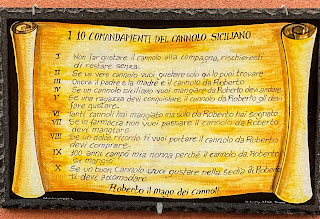 I 10 COMANDAMENTI DEL CANNOLO SICILIANO
I Non far gustare il cannolo alla compagna, rischieresti
di restare senza.
II Se un vero cannolo vuoi gustare solo qui lo puoi trovare
III Onora il padre e la madre e il cannolo da Roberto
IV Se un cannolo siciliano vuoi mangiare da Roberto devi andare
V Se una ragazza devi conquistare il cannolo da Roberto gli devi
fare gustare.
VI Tanti cannoli hai mangiato ma solo da Roberto hai sognato
VII Se in farmacia non vuoi passare il cannolo da Roberto
devi mangiare.
VIII Se un dolce ricordo ti vuoi portare il cannolo da Roberto
devi comprare.
IX 100 anni campò mia nonna perchè il cannolo da Roberto
Si mangiò.
X Se un buon Cannolo vuoi gustare nella Sedia di Roberto
ti devi accomodare
Roberto il mago dei cannoli